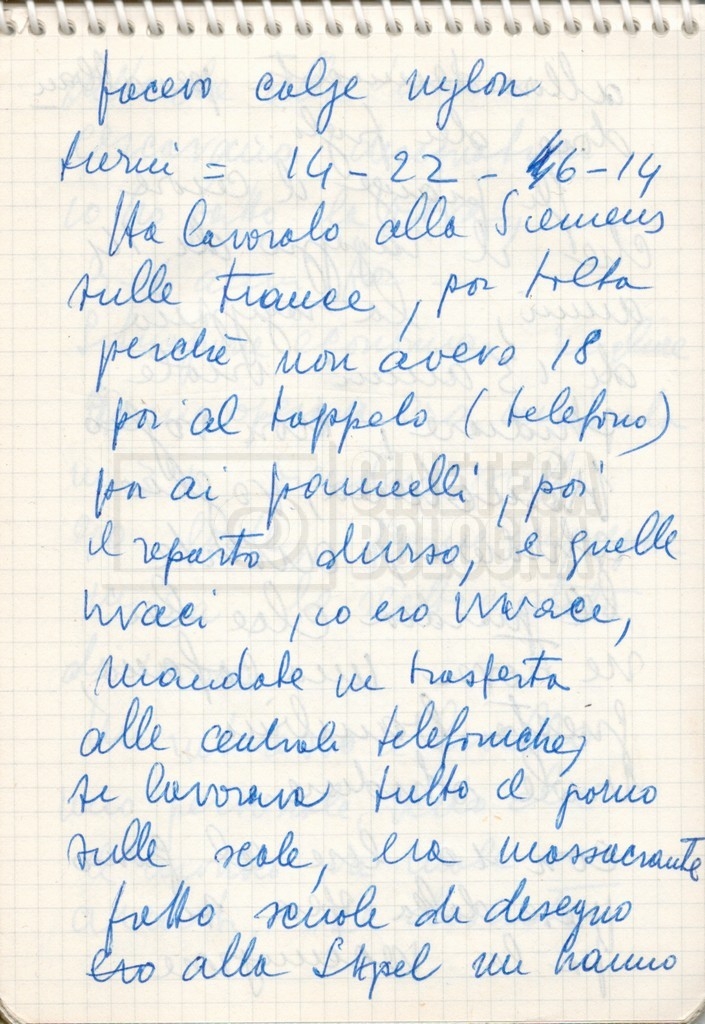 facevo calze nylon
turni = 14 - 22 - 6 - 14
Ha lavorato alla Siemens
sulle trance, poi tolta
perchè non avevo 18
poi al tappeto (telefono)
poi ai pannelli, poi
il reparto chiuso, e quelle
vivaci, io ero vivace,
mandate in trasferta
alle centrali telefoniche,
si lavorava tutto il giorno
sulle scale, era massacrante
fatto scuole di disegno
ero alla Stipel mi hanno
CINETECA
BOLOGNA